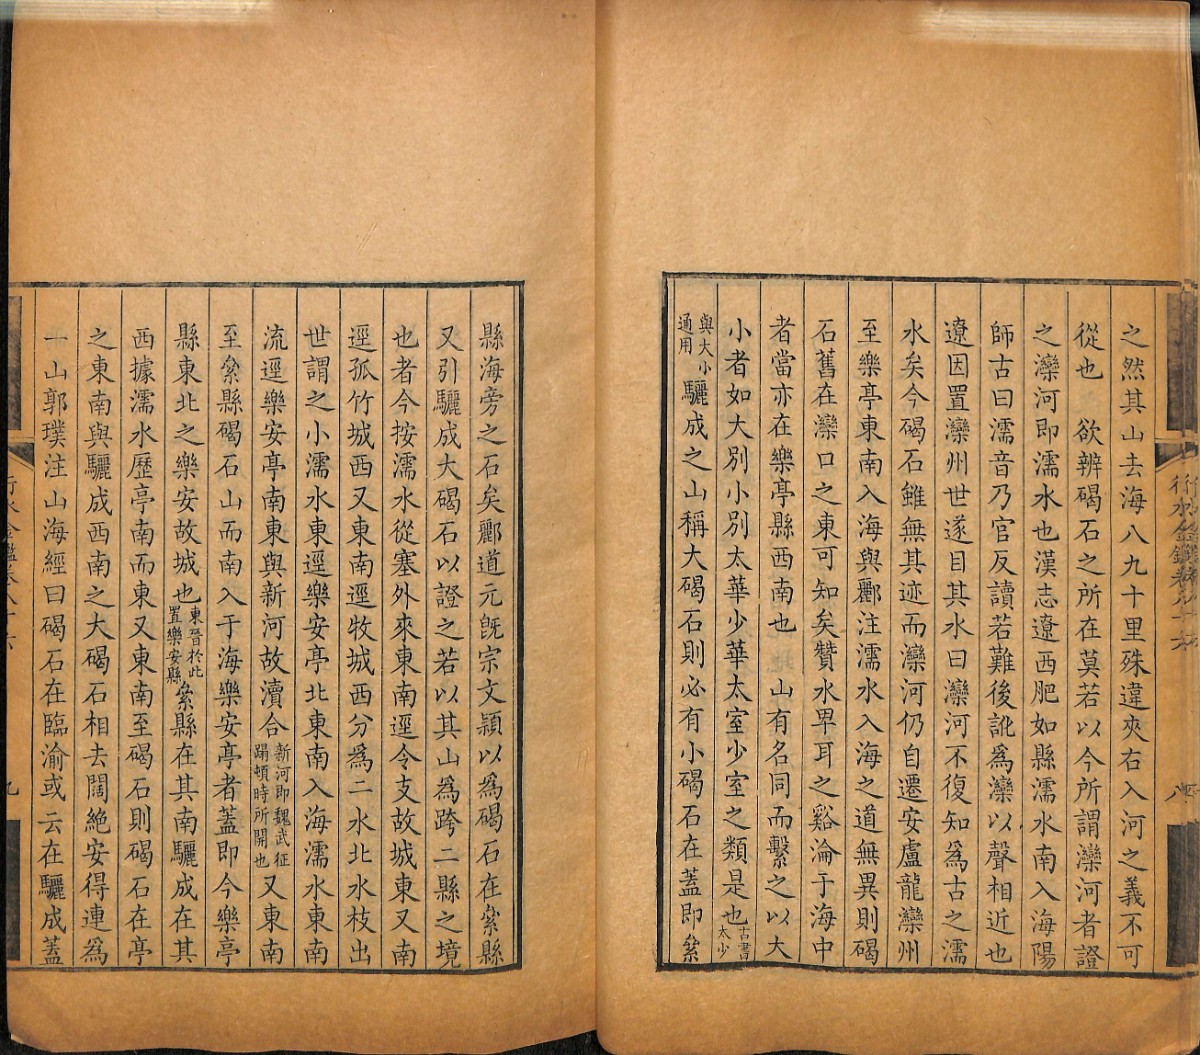 之然其山去海八九十里殊違夾右入河之義不可
從也　欲辨碣石之所在莫若以今所謂灤河者證
之灤河即濡水也漢志遼西肥如縣濡水南入海陽
師古曰濡音乃官反讀若難後訛為灤以聲相近也
遼因置灤州世遂目其水曰灤河不復知為古之濡
水矣今碣石雖無其迹而灤河仍自遷安盧龍灤州
至樂亭東南入海與酈注濡水入海之道無異則碣
石舊在灤口之東可知矣贊水畀耳之谿淪于海中
者當亦在樂亭縣西南也　山有名同而繫之以大
小者如大別小別太華少華太室少室之類是也古書太少
與大小通用驪成之山稱大碣石則必有小碣石在蓋即絫
縣海旁之石矣酈道元旣宗文穎以為碣石在絫縣
又引驪成大碣石以證之若以其山為跨二縣之境
也者今按濡水從塞外來東南逕令支故城東又南
逕孤竹城西又東南逕牧城西分為二水北水枝出
世謂之小濡水東逕樂安亭北東南入海濡水東南
流逕樂安亭南東與新河故瀆合新河即魏武征蹋頓時所開也又東南
至絫縣碣石山而南入于海樂安亭者蓋即今樂亭
縣東北之樂安故城也東晉於此置樂安縣絫縣在其南驪成在其
西據濡水歷亭南而東又東南至碣石則碣石在亭
之東南與驪成西南之大碣石相去闊絶安得連為
一山郭璞注山海經曰碣石在臨渝或云在驪成蓋